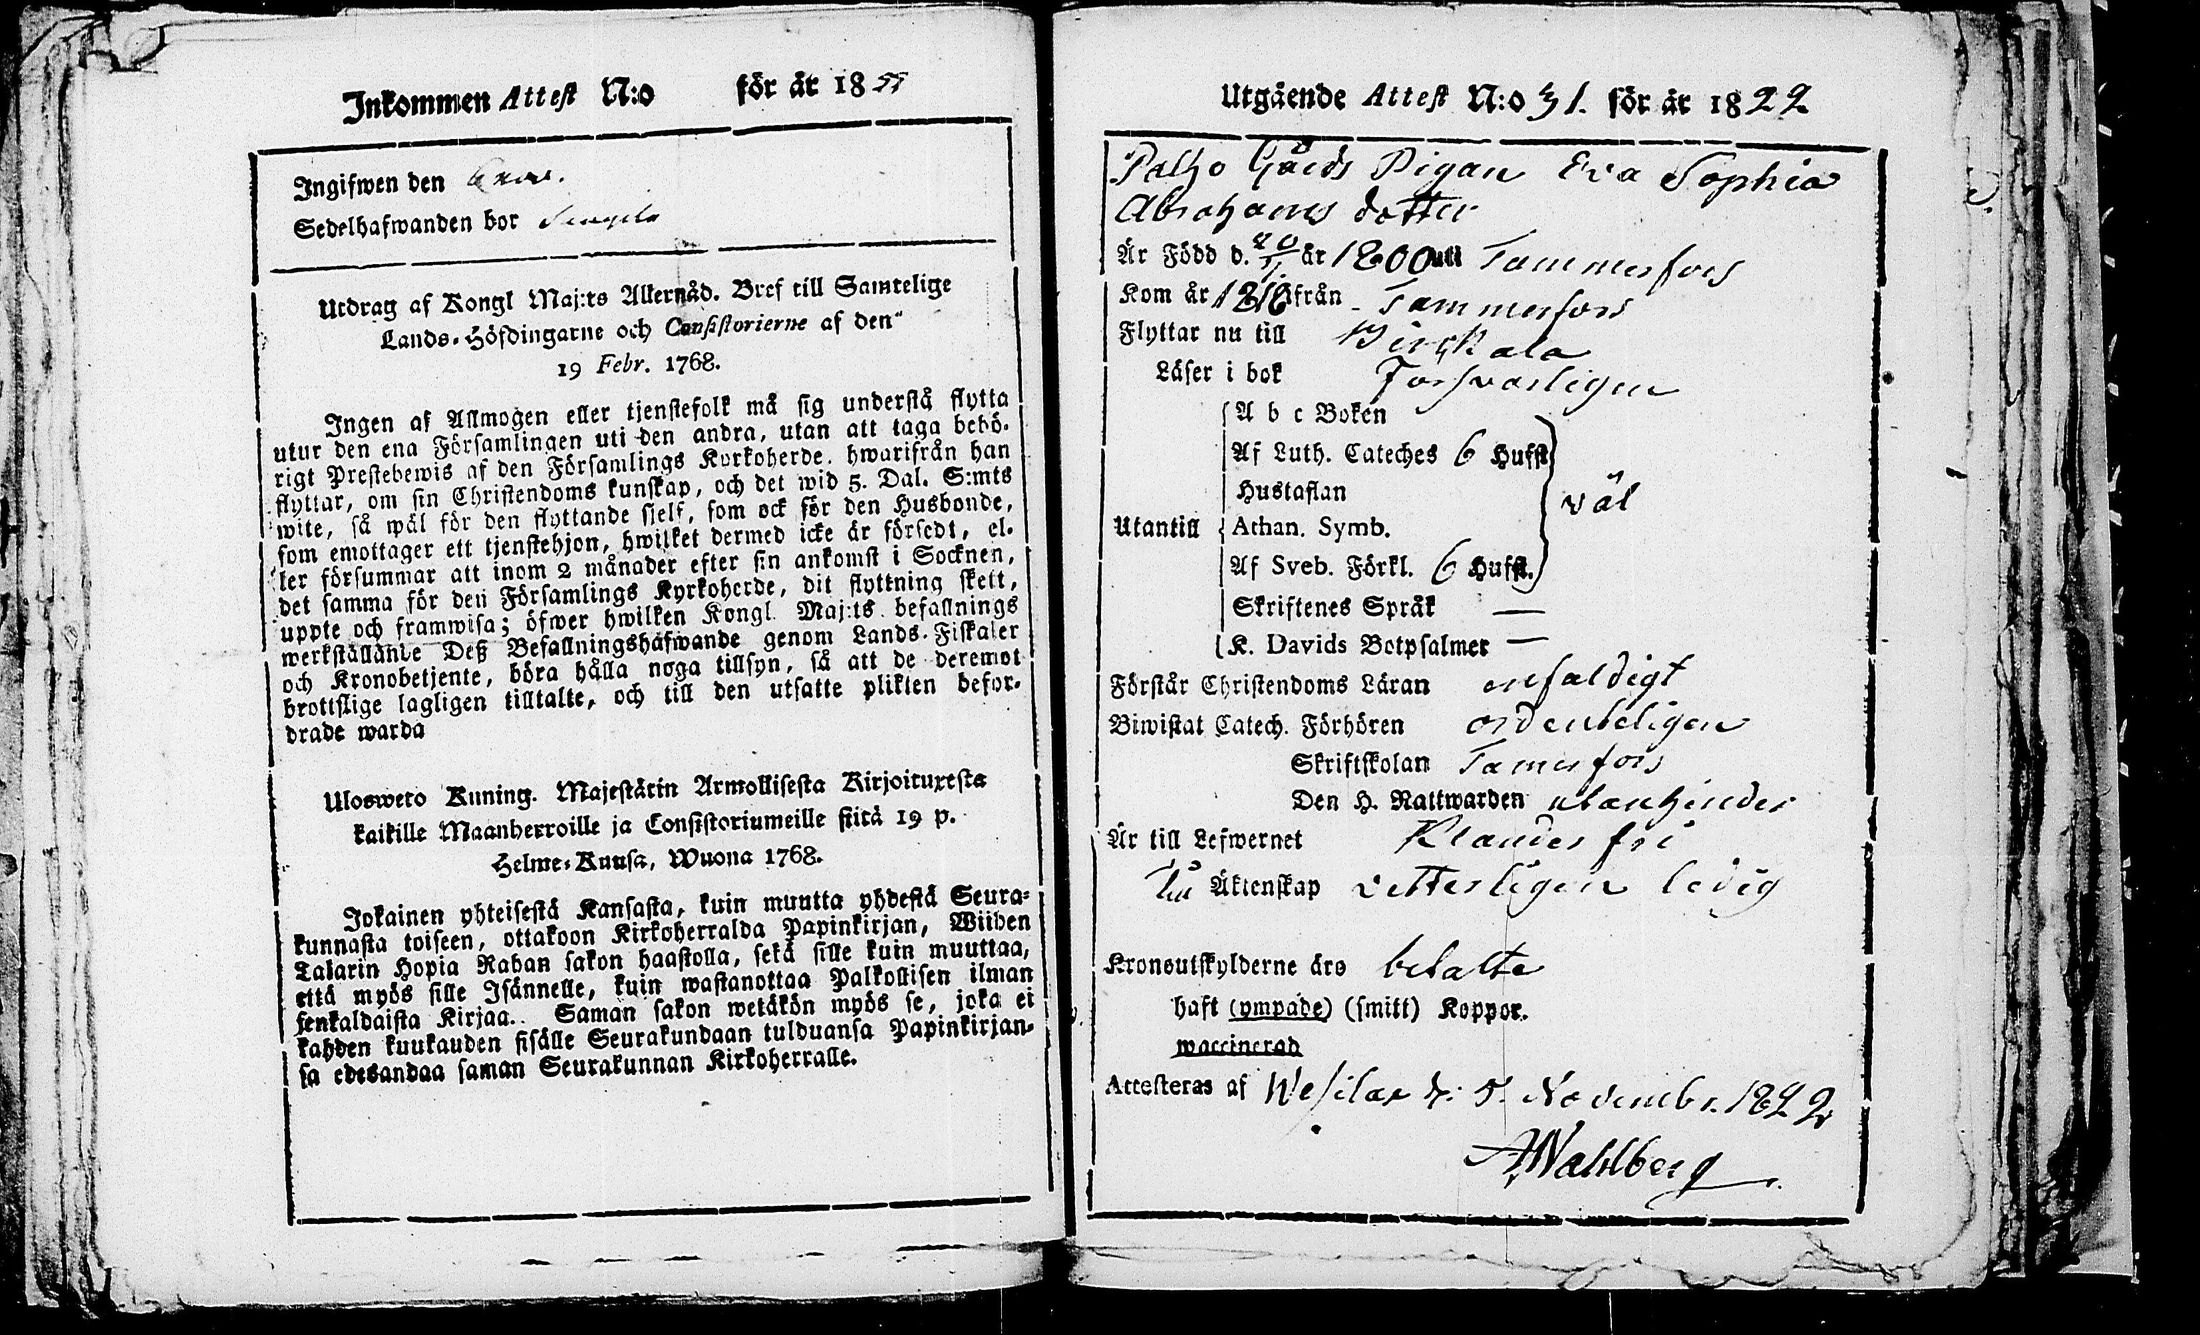 Inkommen Attest N:o för år 18
Ingifwen den
Sedelhafwanden bor
Utdrag af Kongl Maj:ts Allernåd. Bref till Samtelige
Lands-Höfdingarne och Consistorierne af den
19 Febr. 1768.
Ingen af Allmogen eller tjenstefolk må sig understå flytta
utur den ena Församlingen uti den andra, utan att taga behö-
rigt Prestebewis af den Församlings Kyrkoherde, hwarifrån han
flyttar, om sin Christendoms kunskap, och det wid 5. Dal. S:mts
wite, så wäl för den flyttande sjelf, som ock för den Husbonde,
som emottager ett tjenstehjon, hwilket dermed icke är försedt, el-
ler försummar att inom 2 månader efter sin ankomst i Socknen,
det samma för den Församlings Kyrkoherde, dit flyttning skett,
uppte och framwisa; öfwer hwilken Kongl. Maj:ts befallnings
werkställande Deß Befallningshafwande genom Lands-Fiskaler
och Kronobetjente, böra hålla noga tillsyn, så att de deremot
brottslige lagligen tilltalte, och till den utsatte plikten befor-
drade warda
Ulosweto Kuning. Majestätin Armollisesta Kirjoituxesta
kaikille Maanherroille ja Consistoriumeille siitä 19 p.
Helme-Kuusa, Wuona 1768.
Jokainen yhteisestä Kansasta, kuin muutta yhdestä Seura-
kunnasta toiseen, ottakoon Kirkoherralda Papinkirjan, Wiiden
Talarin Hopia Rahan sakon haastolla, sekä sille kuin muuttaa,
että myös sille Isännelle, kuin wastanottaa Palkollisen ilman
senkaldaista Kirjaa. Saman sakon wetäkön myös se, joka ei
kahden kuukauden sisälle Seurakundaan tulduansa Papinkirjan-
sa edesandaa saman Seurakunnan Kirkoherralle.
Utgående Attest N:o 31. för år 1822
Palho Gårds Pigan Eva Sophia
Abrahams dotter
Är Född d. 20/ år 1800 uti Tammerfors
Kom år 1818 från Tammerfors
Flyttar nu till Birckala
Läser i bok Försvarligen
A b c Boken
Af Luth. Cateches 6 Hufst
Hustaflan
Utantill Athan. Symb. väl
Af Sveb. Förkl. 6 Hufst.
Skriftenes Språk —
K. Davids Botpsalmer —
Förstår Christendoms Läran enfaldigt
Biwistat Catech. Förhören ordenteligen
Skriftskolan Tamerfors
Den H. Nattwarden utan hinder
Är till Lefwernet Klander fri
till Äktenskap vetterligen ledig
Kronoutskylderne äro betalte
haft (ympade) (smitt) Koppor.
waccinerad
Attesteras af Wesilax d. 5. Novembr. 1822
A Wahlberg